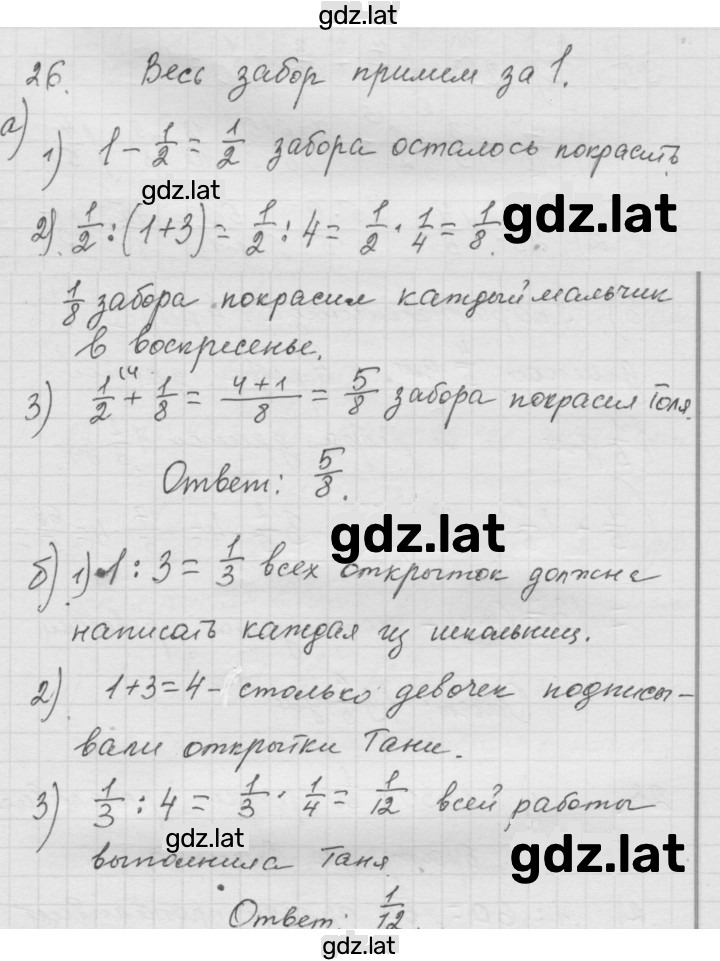 gdz.lat
26. Весь забор примем за 1.
а) 1) 1 - 1/2 = 1/2 забора осталось покрасить
gdz.lat
gdz.lat
2) 1/2 : (1+3) = 1/2 : 4 = 1/2 · 1/4 = 1/8.
1/8 забора покрасил каждый мальчик
в воскресенье.
3) 1/2 (4 + 1/8 = 4+1/8 = 5/8 забора покрасил Толя.
Ответ: 5/8.
gdz.lat
б) 1) 1 : 3 = 1/3 всех открыток должна
написать каждая из школьниц.
2) 1+3=4 - столько девочек подписы-
вали открытки Тани.
3) 1/3 : 4 = 1/3 · 1/4 = 1/12 всей работы
gdz.lat
выполнила Таня
gdz.lat
Ответ: 1/12.
gdz.lat